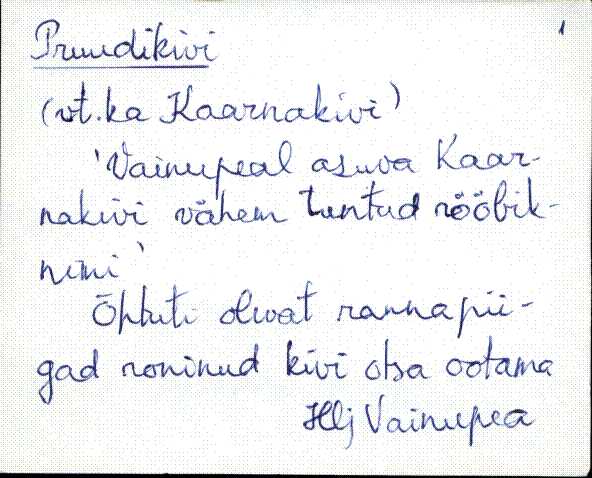 Pruudikivi 1
(vt. ka Kaarnakivi)
'Vainupeal asuva Kaar-
nakivi vähem tuntud rööbik-
nimi'
Õhtuti olevat rannapii-
gad roninud kivi otsa ootama
Hlj Vainupea